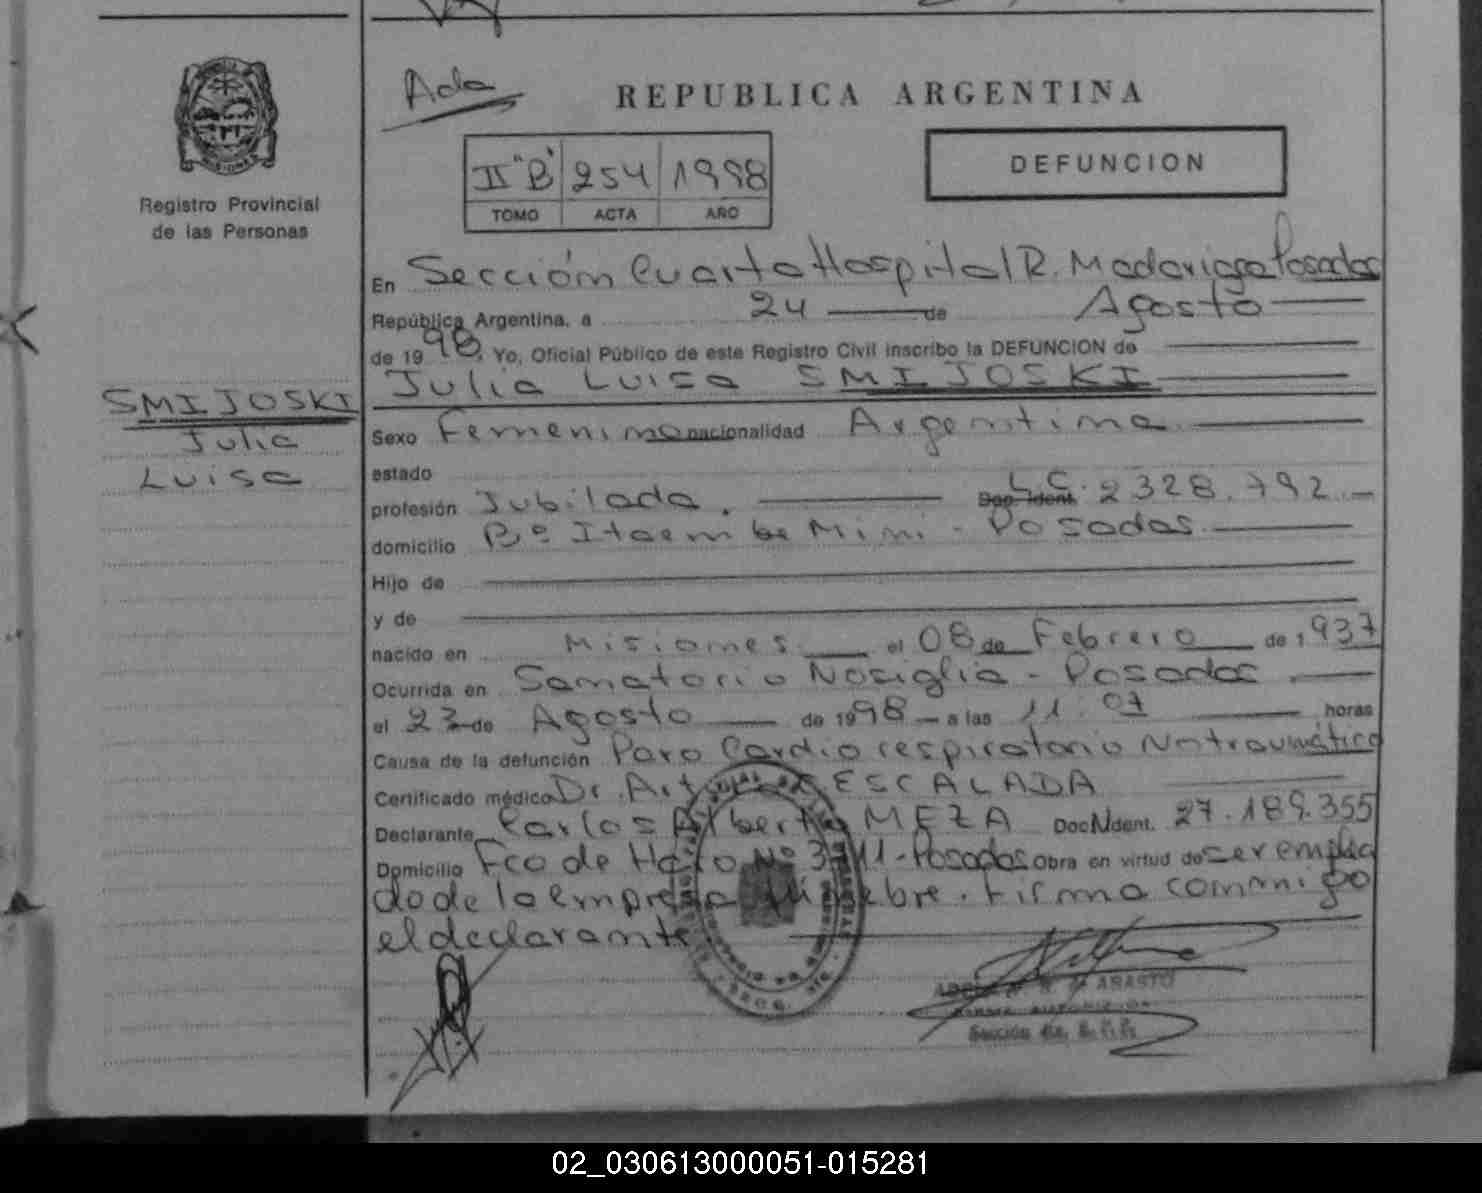 Ada
REPUBLICA ARGENTINA
II "B" 254 1998
TOMO ACTA AÑO
DEFUNCION
Registro Provincial
de las Personas
En Sección Cuarta Hospital R. Madariaga Posadas
República Argentina, a 24 de Agosto
de 19 98. Yo, Oficial Público de este Registro Civil inscribo la DEFUNCION de
Julia Luisa SMIJOSKI
SMIJOSKI
Julia
Luisa
Sexo Femenino nacionalidad Argentina
estado
profesión Jubilada. Doc. Ident. L.C. 2328.792
domicilio Bº Itaembe Mini - Posadas
Hijo de
y de
nacido en Misiones el 08 de Febrero de 1937
Ocurrida en Sanatorio Nosiglia - Posadas
el 23 de Agosto de 1998 a las 11:07 horas
Causa de la defunción Paro Cardio respiratorio No traumático
Certificado médico Dr. ESCALADA
Declarante Carlos Alberto MEZA Doc N Ident. 27.189.355
Domicilio Fco de Haro Nº 3711 - Posadas Obra en virtud de ser emplea
do de la empresa fúnebre. Firma conmigo
el declarante
ABASTO
02_030613000051-015281